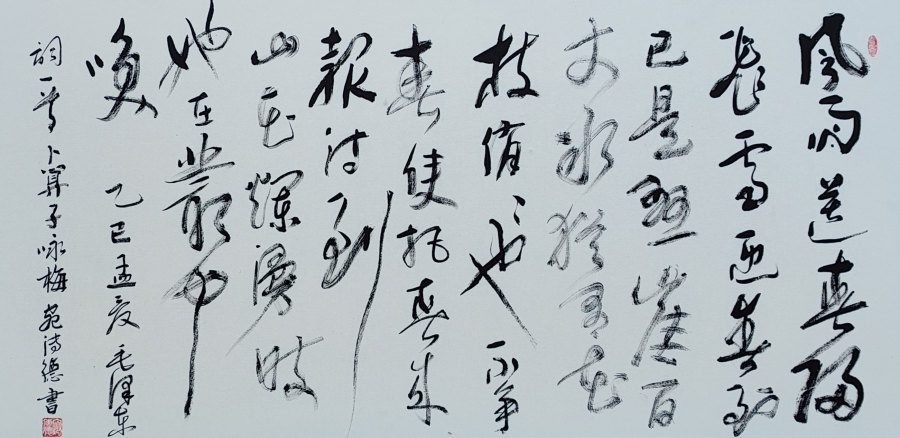 風雨送春歸
飛雪迎春到
已是懸崖百
丈冰猶有花
枝俏〻也不争
春隻把春来
報待到
山花爛漫時
她在叢中
咲
乙巳孟夏毛澤東
詞一首卜算子咏梅苑德書